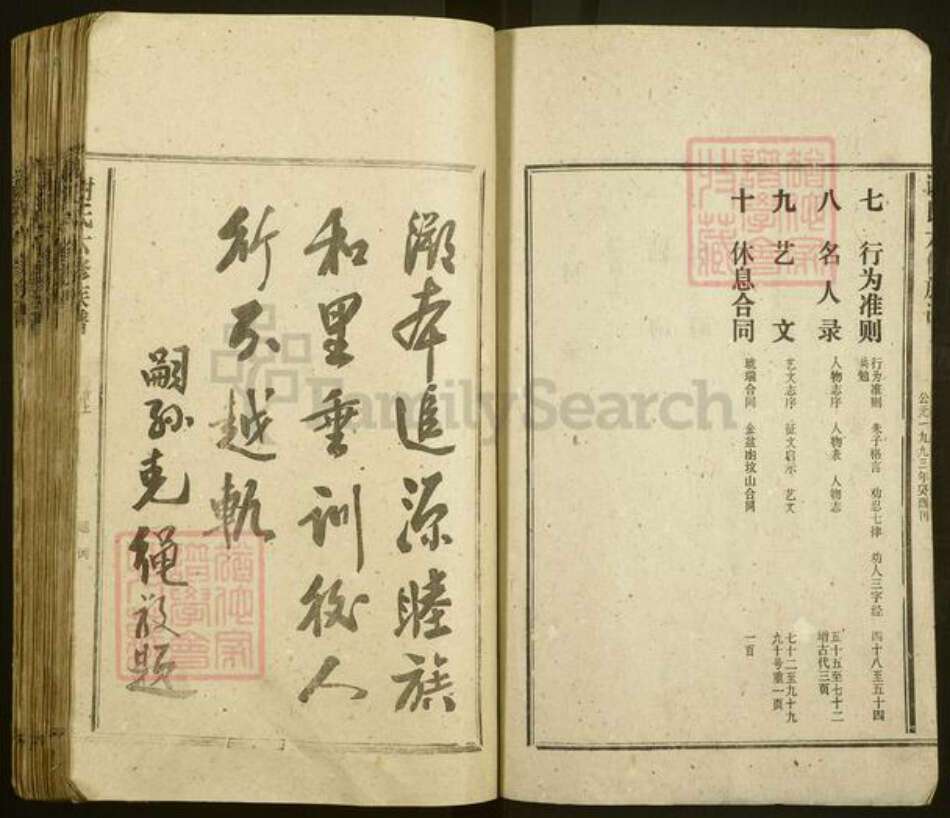 七 行为准则 行为准则 朱子格言 劝忍七律 劝人三字经 四十八至五十四
八 名人录 人物志序 人物表 人物志 五十五至七十二
增古代三頁
九 艺文 艺文志序 征文启示 艺文 七十二至九十九
九十号重一頁
十 休息合同 琥瑞合同 金盆凼坟山合同 一百
公元一九九三年癸酉刊
溯本追源睦族
和里垂训後人
行不越軌
嗣孙克绳敬题
謝氏六修族譜
FamilySearch